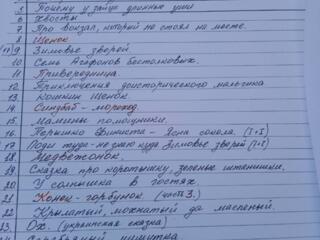 5 Почему у зайца длинные уши
6 Хвосты
7 Про вокзал, который не стоял на месте.
8 Щенок
9 Зимовье зверей.
10 Семь Агафонов бестолковых.
11 Привередница.
12 Приключения доисторического мальчика
13 Кошкин щенок
14 Синдбад - мореход
15 Мамины помощники.
16 Пёрышко Финиста - Ясна сокола. (I+I)
17 Поди туда - не знаю куда Зимовье зверей (I+I)
18 Медвежонок.
19 Сказка про коротышку, зеленые штанишки.
20 У солнышка в гостях.
21 Конек - горбунок (часть 3.)
22 Крылатый, мохнатый да масленый.
23. Ох. (украинская сказка)